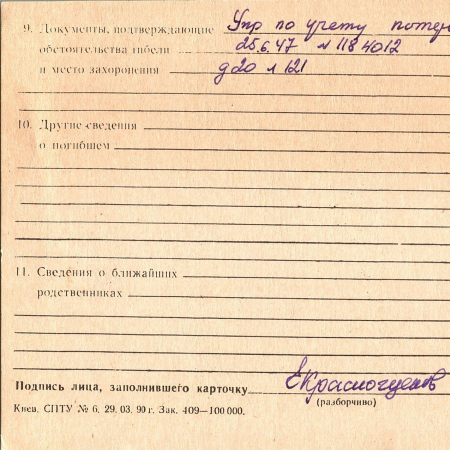 9. Документы, подтверждающие Упр по учету потерь
обстоятельства гибели 25.6.47 № 1184012
и место захоронения д20 л 121
10. Другие сведения
о погибшем
11. Сведения о ближайших
родственниках
Подпись лица, заполнившего карточку
(разборчиво)
Киев, СПТУ № 6, 29. 03. 90 г. Зак. 409—100 000.